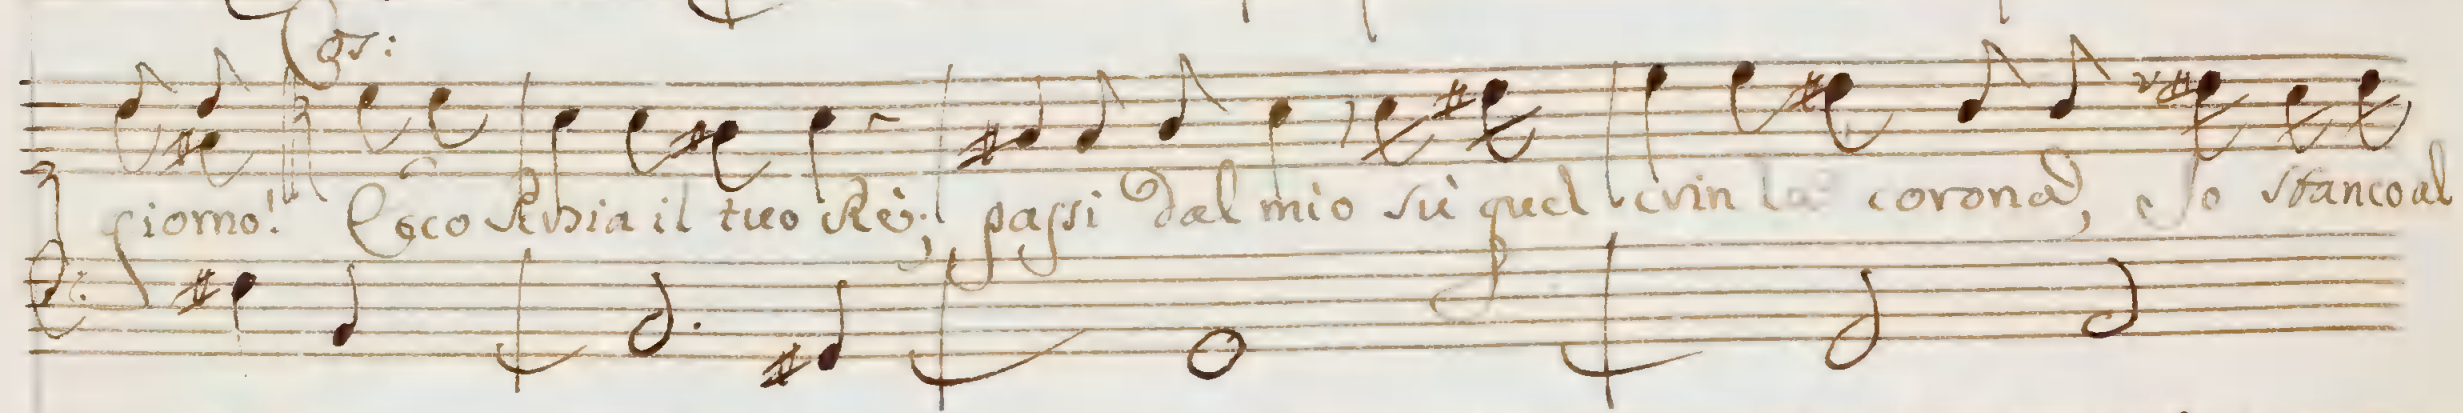 Cos:
giorno! Ecco Persia il tuo Rè; passi dal mio sù quel crin la corona, e Io stanco al